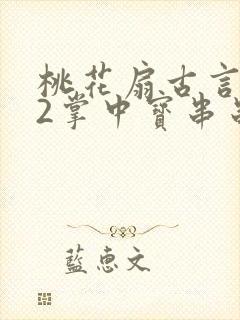 桃花扇古言
2掌中寶串
藍惠文